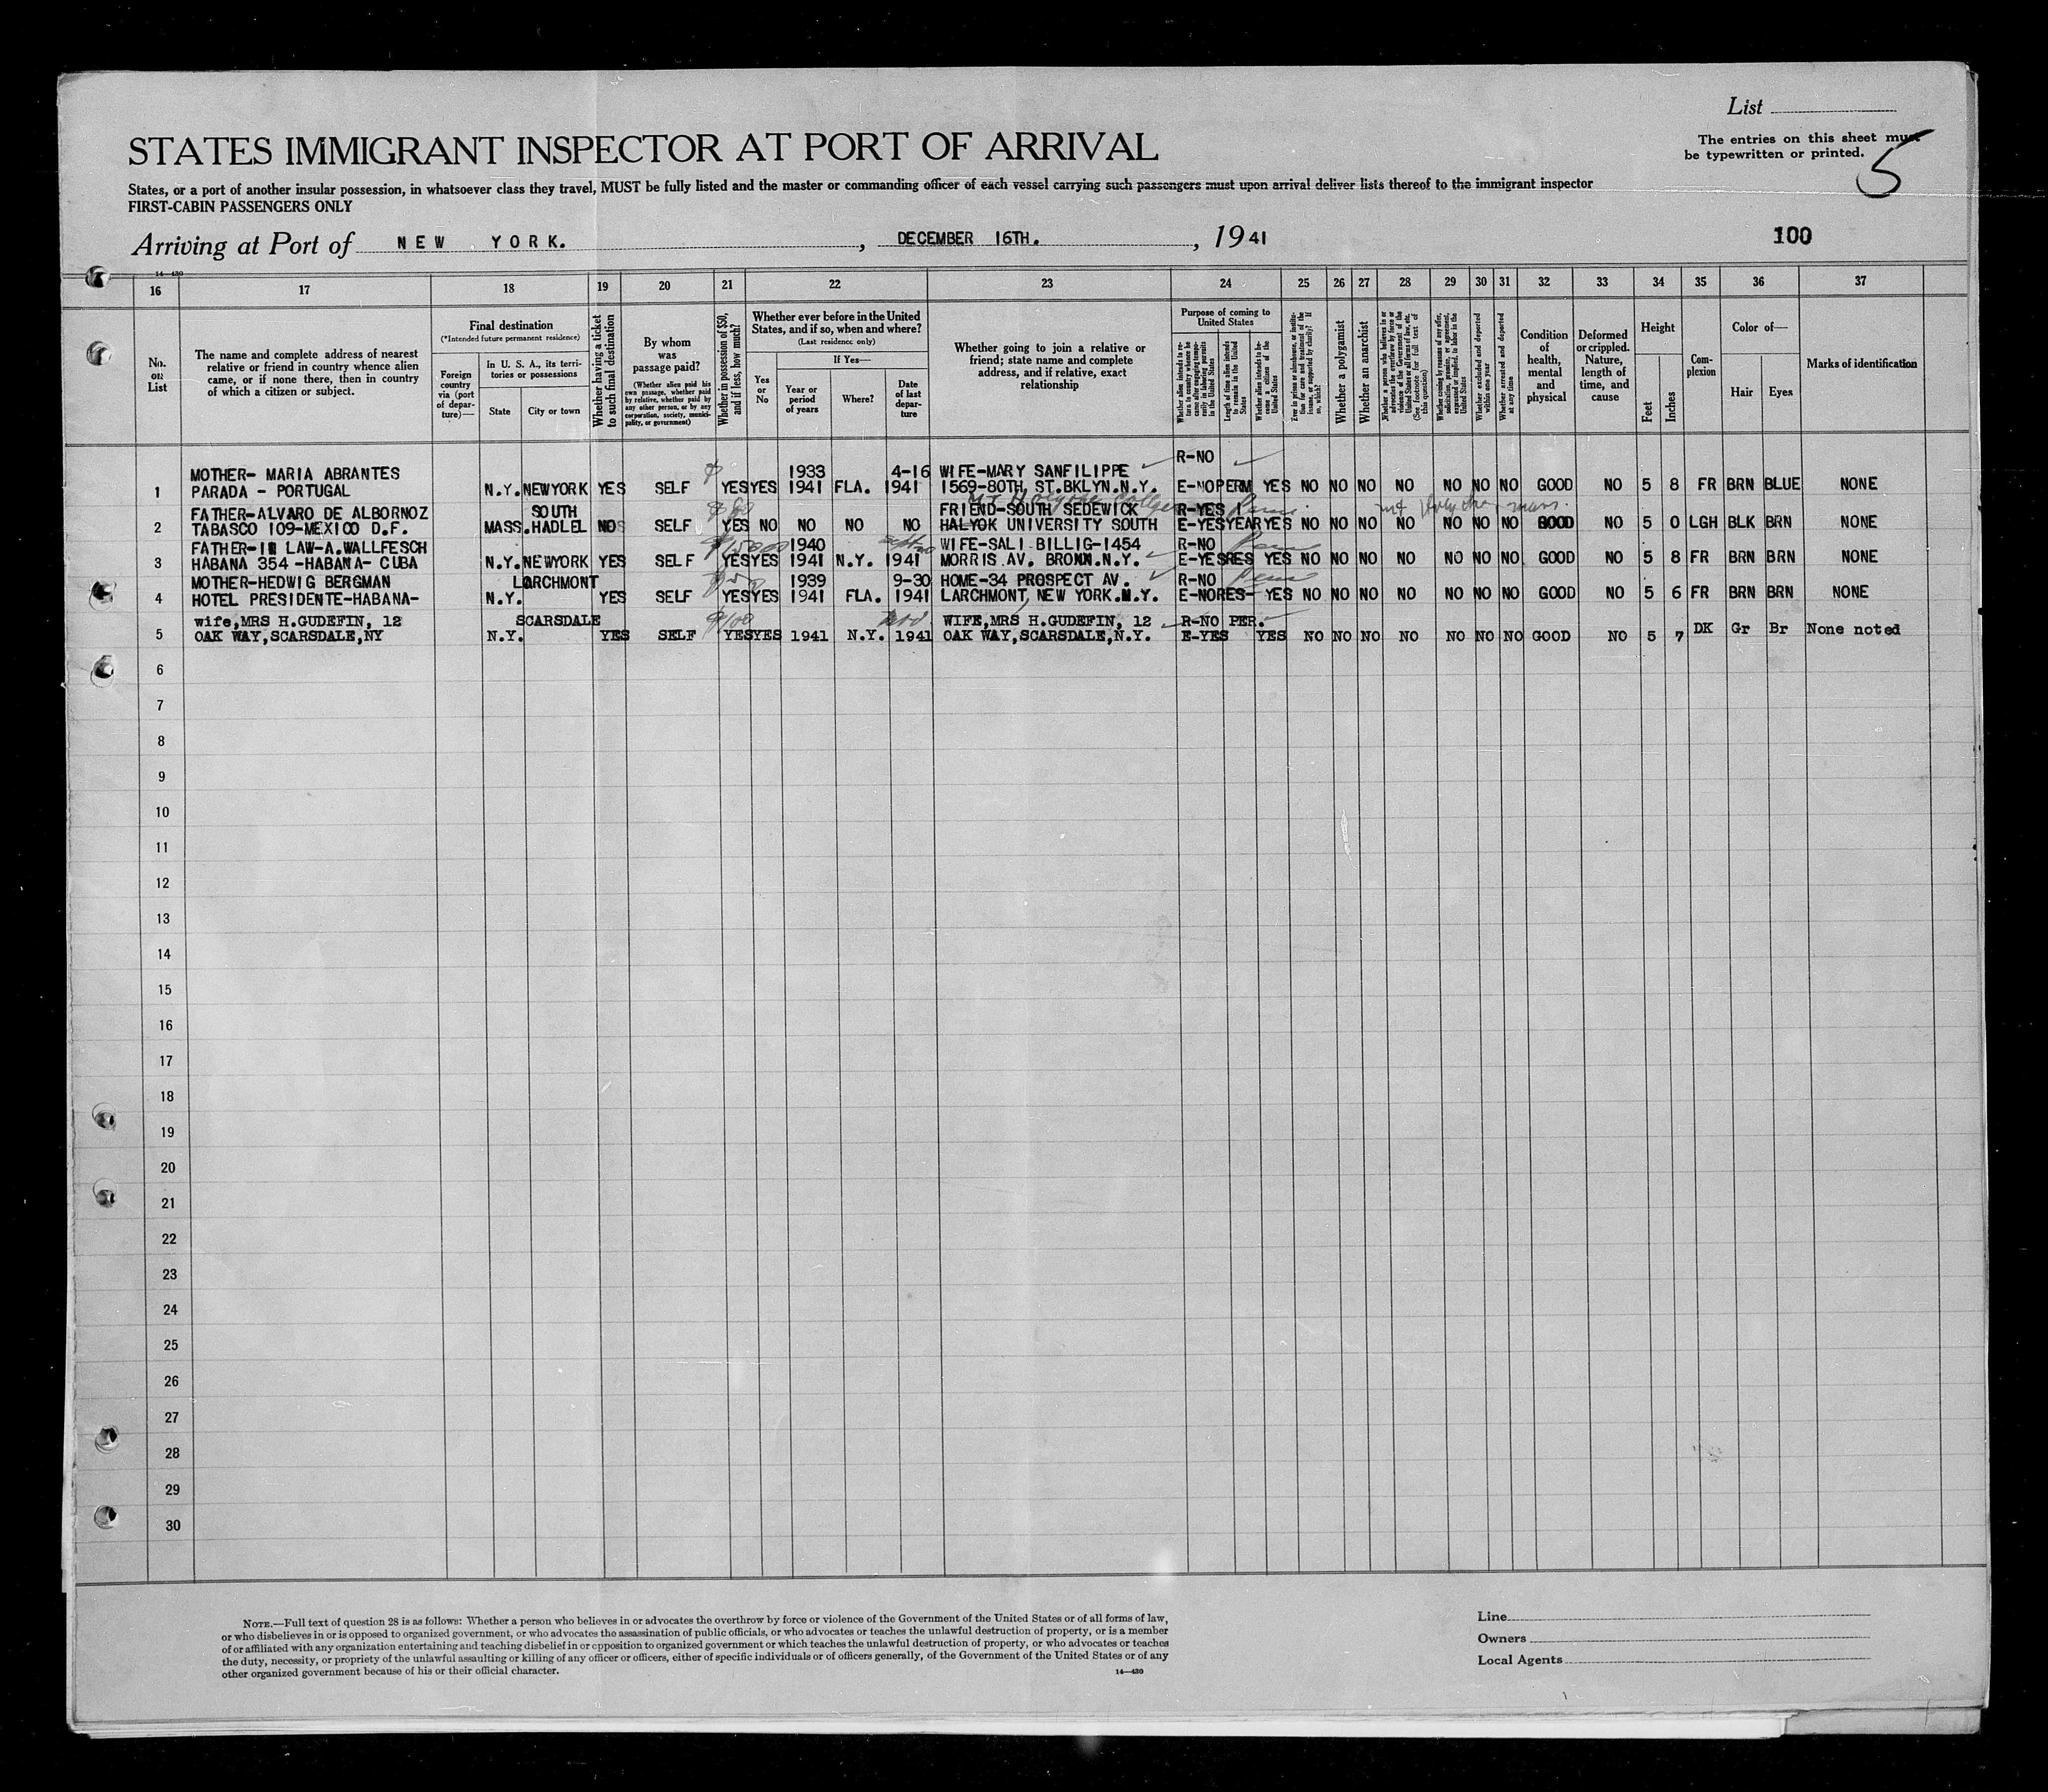 List
The entries on this sheet must
be typewritten or printed.
5
STATES IMMIGRANT INSPECTOR AT PORT OF ARRIVAL
States, or a port of another insular possession, in whatsoever class they travel, MUST be fully listed and the master or commanding officer of each vessel carrying such passengers must upon arrival deliver lists thereof to the immigrant inspector
FIRST-CABIN PASSENGERS ONLY
Arriving at Port of NEW YORK. , DECEMBER 16TH. , 1941
100
14—430
16 17 18 19 20 21 22 23 24 25 26 27 28 29 30 31 32 33 34 35 36 37
No. on List
The name and complete address of nearest
relative or friend in country whence alien
came, or if none there, then in country
of which a citizen or subject.
Final destination
(*Intended future permanent residence)
Foreign country via (port of departure)—
In U. S. A., its territories or possessions
State
City or town
Whether having a ticket to such final destination
By whom was passage paid?
(Whether alien paid his own passage, whether paid by relative, whether paid by any other person, or by any corporation, society, municipality, or government)
Whether in possession of $50, and if less, how much?
Whether ever before in the United States, and if so, when and where?
(Last residence only)
Yes or No
If Yes—
Year or period of years
Where?
Date of last departure
Whether going to join a relative or
friend; state name and complete
address, and if relative, exact
relationship
Purpose of coming to United States
Whether alien intends to return to country whence he came after engaging temporarily in laboring pursuits in the United States
Length of time alien intends to remain in the United States
Whether alien intends to become a citizen of the United States
Ever in prison or almshouse, or institution for care and treatment of the insane, or supported by charity? If so, which?
Whether a polygamist
Whether an anarchist
Whether a person who believes in or advocates the overthrow by force or violence of the Government of the United States or all forms of law, etc. (See footnote for full text of this question)
Whether coming by reasons of any offer, solicitation, promise, or agreement, expressed or implied, to labor in the United States
Whether excluded and deported within one year
Whether arrested and deported at any time
Condition of health, mental and physical
Deformed or crippled. Nature, length of time, and cause
Height
Feet
Inches
Complexion
Color of—
Hair
Eyes
Marks of identification
MOTHER- MARIA ABRANTES 1933 4-16 WIFE-MARY SANFILIPPE R-NO
1 PARADA - PORTUGAL N.Y. NEWYORK YES SELF YES YES 1941 FLA. 1941 1569-80TH, ST.BKLYN.N.Y. E-NO PERM YES NO NO NO NO NO NO NO GOOD NO 5 8 FR BRN BLUE NONE
Mt Holyoke College
FATHER-ALVARO DE ALBORNOZ SOUTH FRIEND-SOUTH SEDEWICK R-YES
2 TABASCO 109-MEXICO D.F. MASS. HADLEL NO SELF YES NO NO NO NO HALYOK UNIVERSITY SOUTH E-YES YEAR YES NO NO NO NO NO NO NO GOOD NO 5 0 LGH BLK BRN NONE
FATHER-IN LAW-A.WALLFESCH 1940 WIFE-SALI BILLIG-1454 R-NO
3 HABANA 354 -HABANA- CUBA N.Y. NEWYORK YES SELF YES YES 1941 N.Y. 1941 MORRIS AV. BRONN.N.Y. E-YES RES YES NO NO NO NO NO NO NO GOOD NO 5 8 FR BRN BRN NONE
MOTHER-HEDWIG BERGMAN LARCHMONT 1939 9-30 HOME-34 PROSPECT AV. R-NO
4 HOTEL PRESIDENTE-HABANA- N.Y. YES SELF YES YES 1941 FLA. 1941 LARCHMONT, NEW YORK.N.Y. E-NO RES- YES NO NO NO NO NO NO NO GOOD NO 5 6 FR BRN BRN NONE
wife,MRS H.GUDEFIN, 12 SCARSDALE $100 WIFE,MRS H.GUDEFIN, 12 R-NO PER.
5 OAK WAY,SCARSDALE,NY N.Y. YES SELF YES YES 1941 N.Y. 1941 OAK WAY,SCARSDALE,N.Y. E-YES YES NO NO NO NO NO NO NO GOOD NO 5 7 DK Gr Br None noted
6
7
8
9
10
11
12
13
14
15
16
17
18
19
20
21
22
23
24
25
26
27
28
29
30
NOTE.—Full text of question 28 is as follows: Whether a person who believes in or advocates the overthrow by force or violence of the Government of the United States or of all forms of law,
or who disbelieves in or is opposed to organized government, or who advocates the assassination of public officials, or who advocates or teaches the unlawful destruction of property, or is a member
of or affiliated with any organization entertaining and teaching disbelief in or opposition to organized government or which teaches the unlawful destruction of property, or who advocates or teaches
the duty, necessity, or propriety of the unlawful assaulting or killing of any officer or officers, either of specific individuals or of officers generally, of the Government of the United States or of any
other organized government because of his or their official character.
14—430
Line
Owners
Local Agents